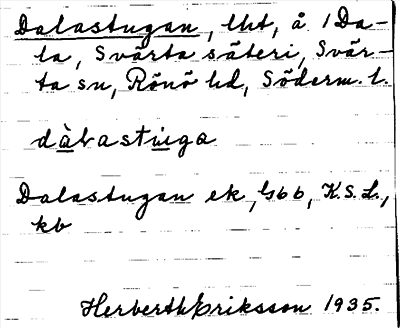 Dalastugan, lht, å 1 Da-
la, Svärta säteri, Svär-
ta sn, Rönö hd, Söderm. l.
dàlastuga
Dalastugan ek, Gbb, K.S.L.,
kb
Herberth Eriksson 1935.